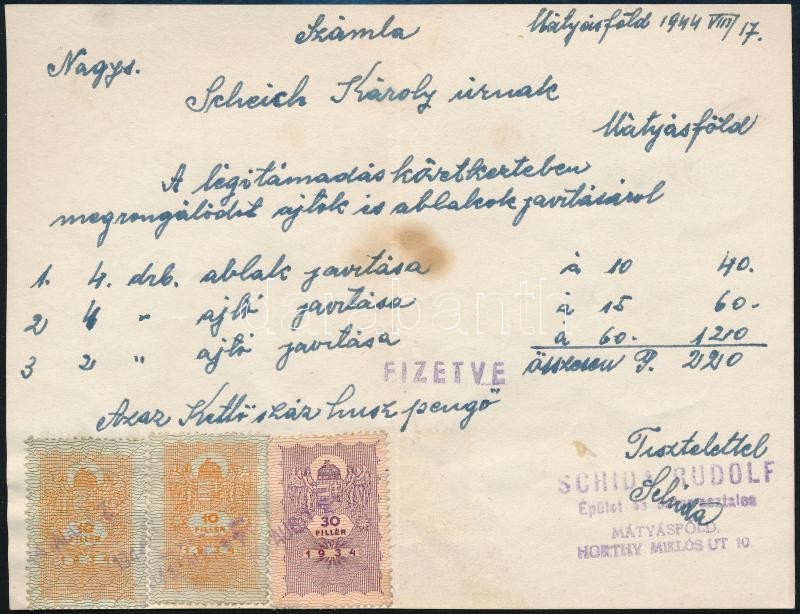 Számla
Mátyásföld 1944 VIII/17.
Nagys.
Scheich Károly úrnak
Mátyásföld
A légitámadás következtében
megrongálódot ajtok is ablakok javításárol
1. 4. drb. ablak javítása á 10 40.
2 4 " ajtó javítása á 15 60.-
3 2 " ajtó javítása á 60.- 120
FIZETVE
összesen P. 220
Azaz Kettőszáz husz pengő
Tisztelettel
SCHIDA RUDOLF
Schida
Épület és
MÁTYÁSFÖLD,
HORTHY MIKLÓS UT 10.
10
FILLÉR
1934
10
FILLÉR
1934
30
FILLÉR
1934
darabanth